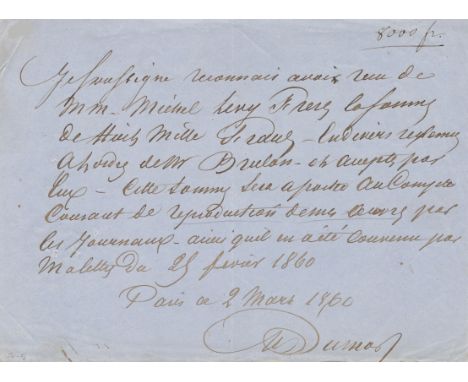 8000 fr.
Je soussigne reconnais avoir reçu de
MM. Michel Levy Freres la somme
de Huit Mille Francs - en divers reglemens
a l'ordre de Mr Brulon - et acceptés par
Eux - Cette somme sera a porter au Compte
Courant de reproduction de mes œuvres par
les Journaux - ainsi quil en a été convenu par
ma lettre du 25 fevrier 1860
Paris ce 2 Mars 1860
A Dumas